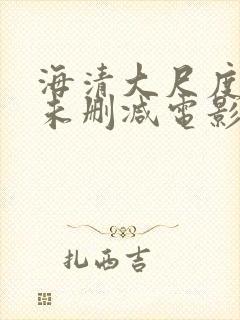 海清大尺度
未删减电影
扎西吉